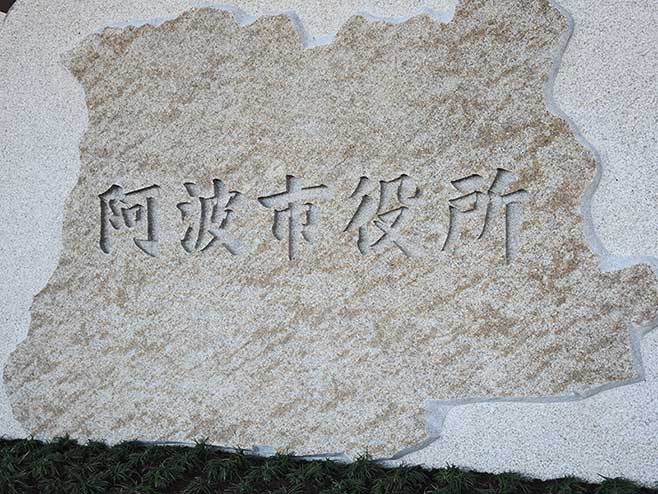 阿波市役所